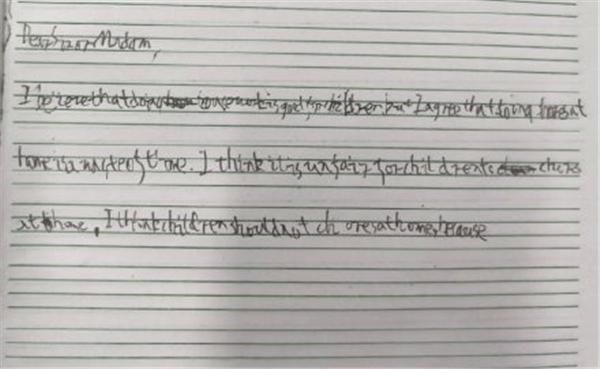 Dear Sir or Madam,
I believe that doing housework is good for children but I agree that doing at
home is a waste of time. I think it is unfair for children to chores
at home, I think children should not chores at home because